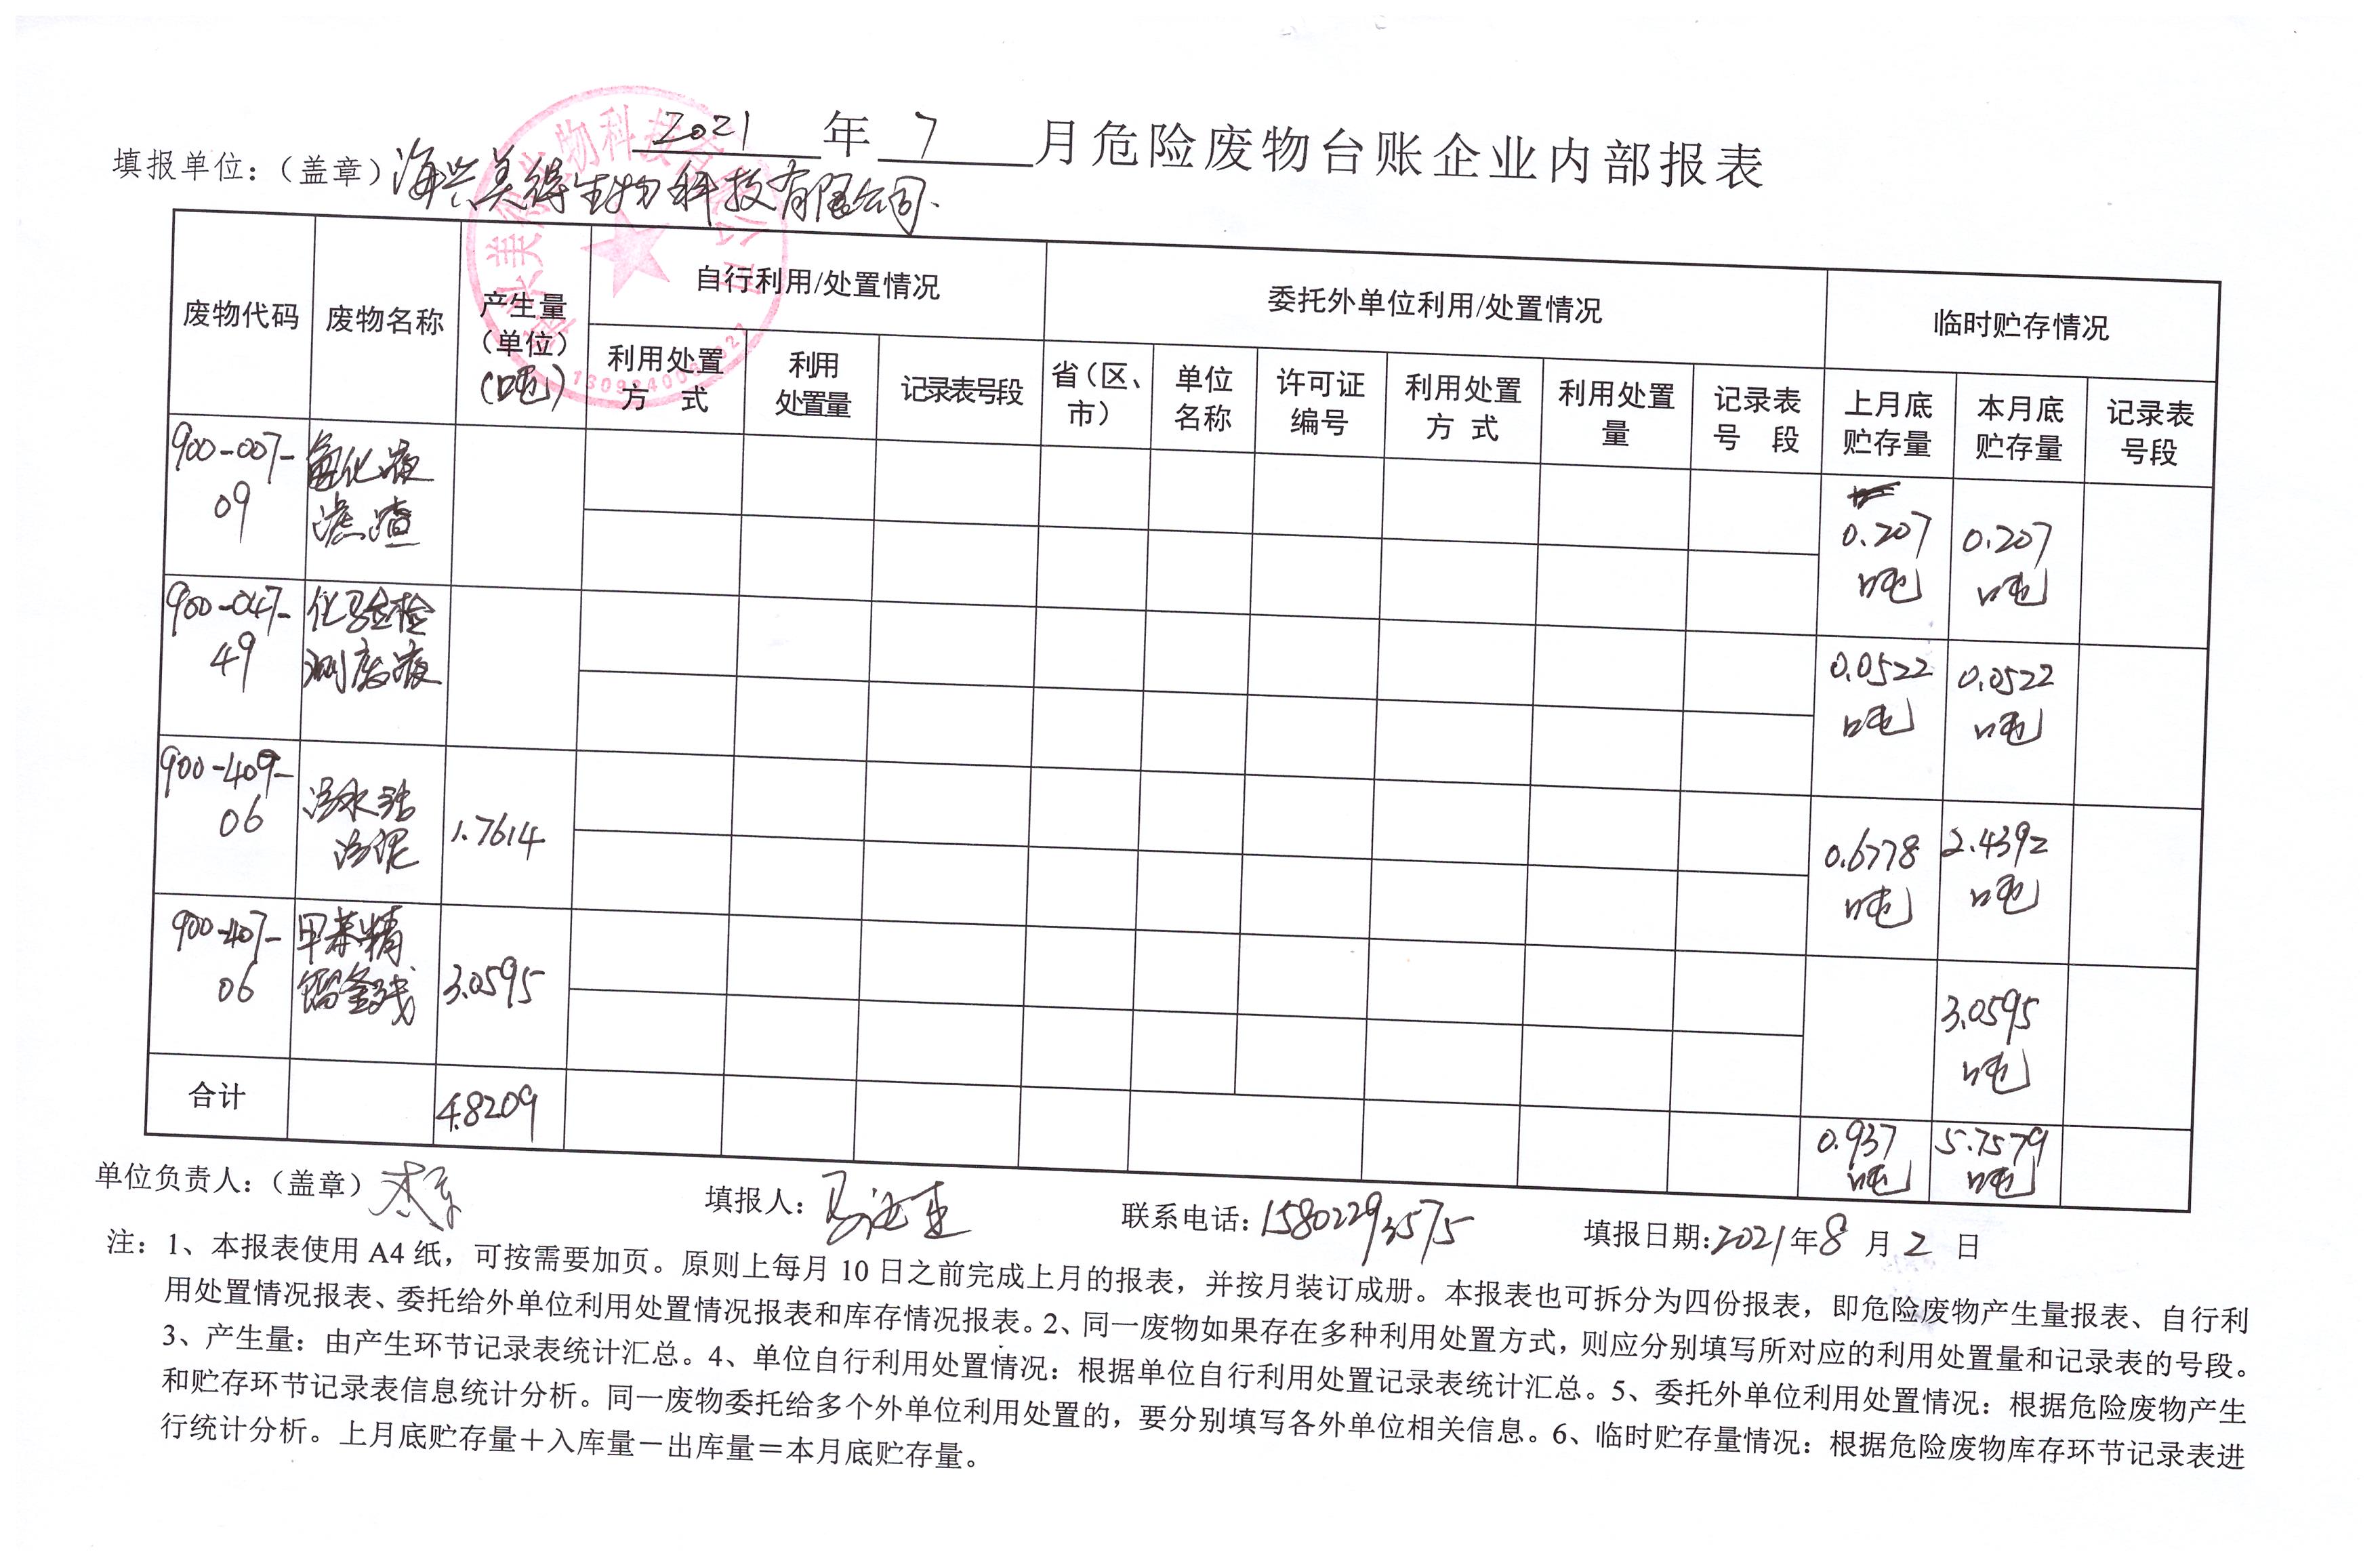 2021 年 7 月危险废物台账企业内部报表
填报单位：（盖章）海兴美得生物科技有限公司
废物代码 废物名称 产生量（单位）（吨） 自行利用/处置情况 委托外单位利用/处置情况 临时贮存情况
利用处置方 式 利用处置量 记录表号段 省（区、市） 单位名称 许可证编号 利用处置方 式 利用处置量 记录表号 段 上月底贮存量 本月底贮存量 记录表号段
900-007-09 氰化液滤渣 0.207吨 0.207吨
900-047-49 化验检测废液 0.0522吨 0.0522吨
900-409-06 污水站污泥 1.7614 0.6778吨 2.4392吨
900-407-06 甲苯精馏釜残 3.0595 3.0595吨
合计 4.8209 0.937吨 5.7579吨
单位负责人：（盖章） 填报人： 联系电话：15802293575 填报日期：2021年8月2日
注：1、本报表使用 A4 纸，可按需要加页。原则上每月 10 日之前完成上月的报表，并按月装订成册。本报表也可拆分为四份报表，即危险废物产生量报表、自行利
用处置情况报表、委托给外单位利用处置情况报表和库存情况报表。2、同一废物如果存在多种利用处置方式，则应分别填写所对应的利用处置量和记录表的号段。
3、产生量：由产生环节记录表统计汇总。4、单位自行利用处置情况：根据单位自行利用处置记录表统计汇总。5、委托外单位利用处置情况：根据危险废物产生
和贮存环节记录表信息统计分析。同一废物委托给多个外单位利用处置的，要分别填写各外单位相关信息。6、临时贮存量情况：根据危险废物库存环节记录表进
行统计分析。上月底贮存量＋入库量－出库量＝本月底贮存量。